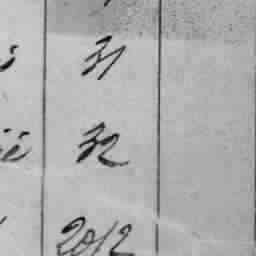 31
32
2012